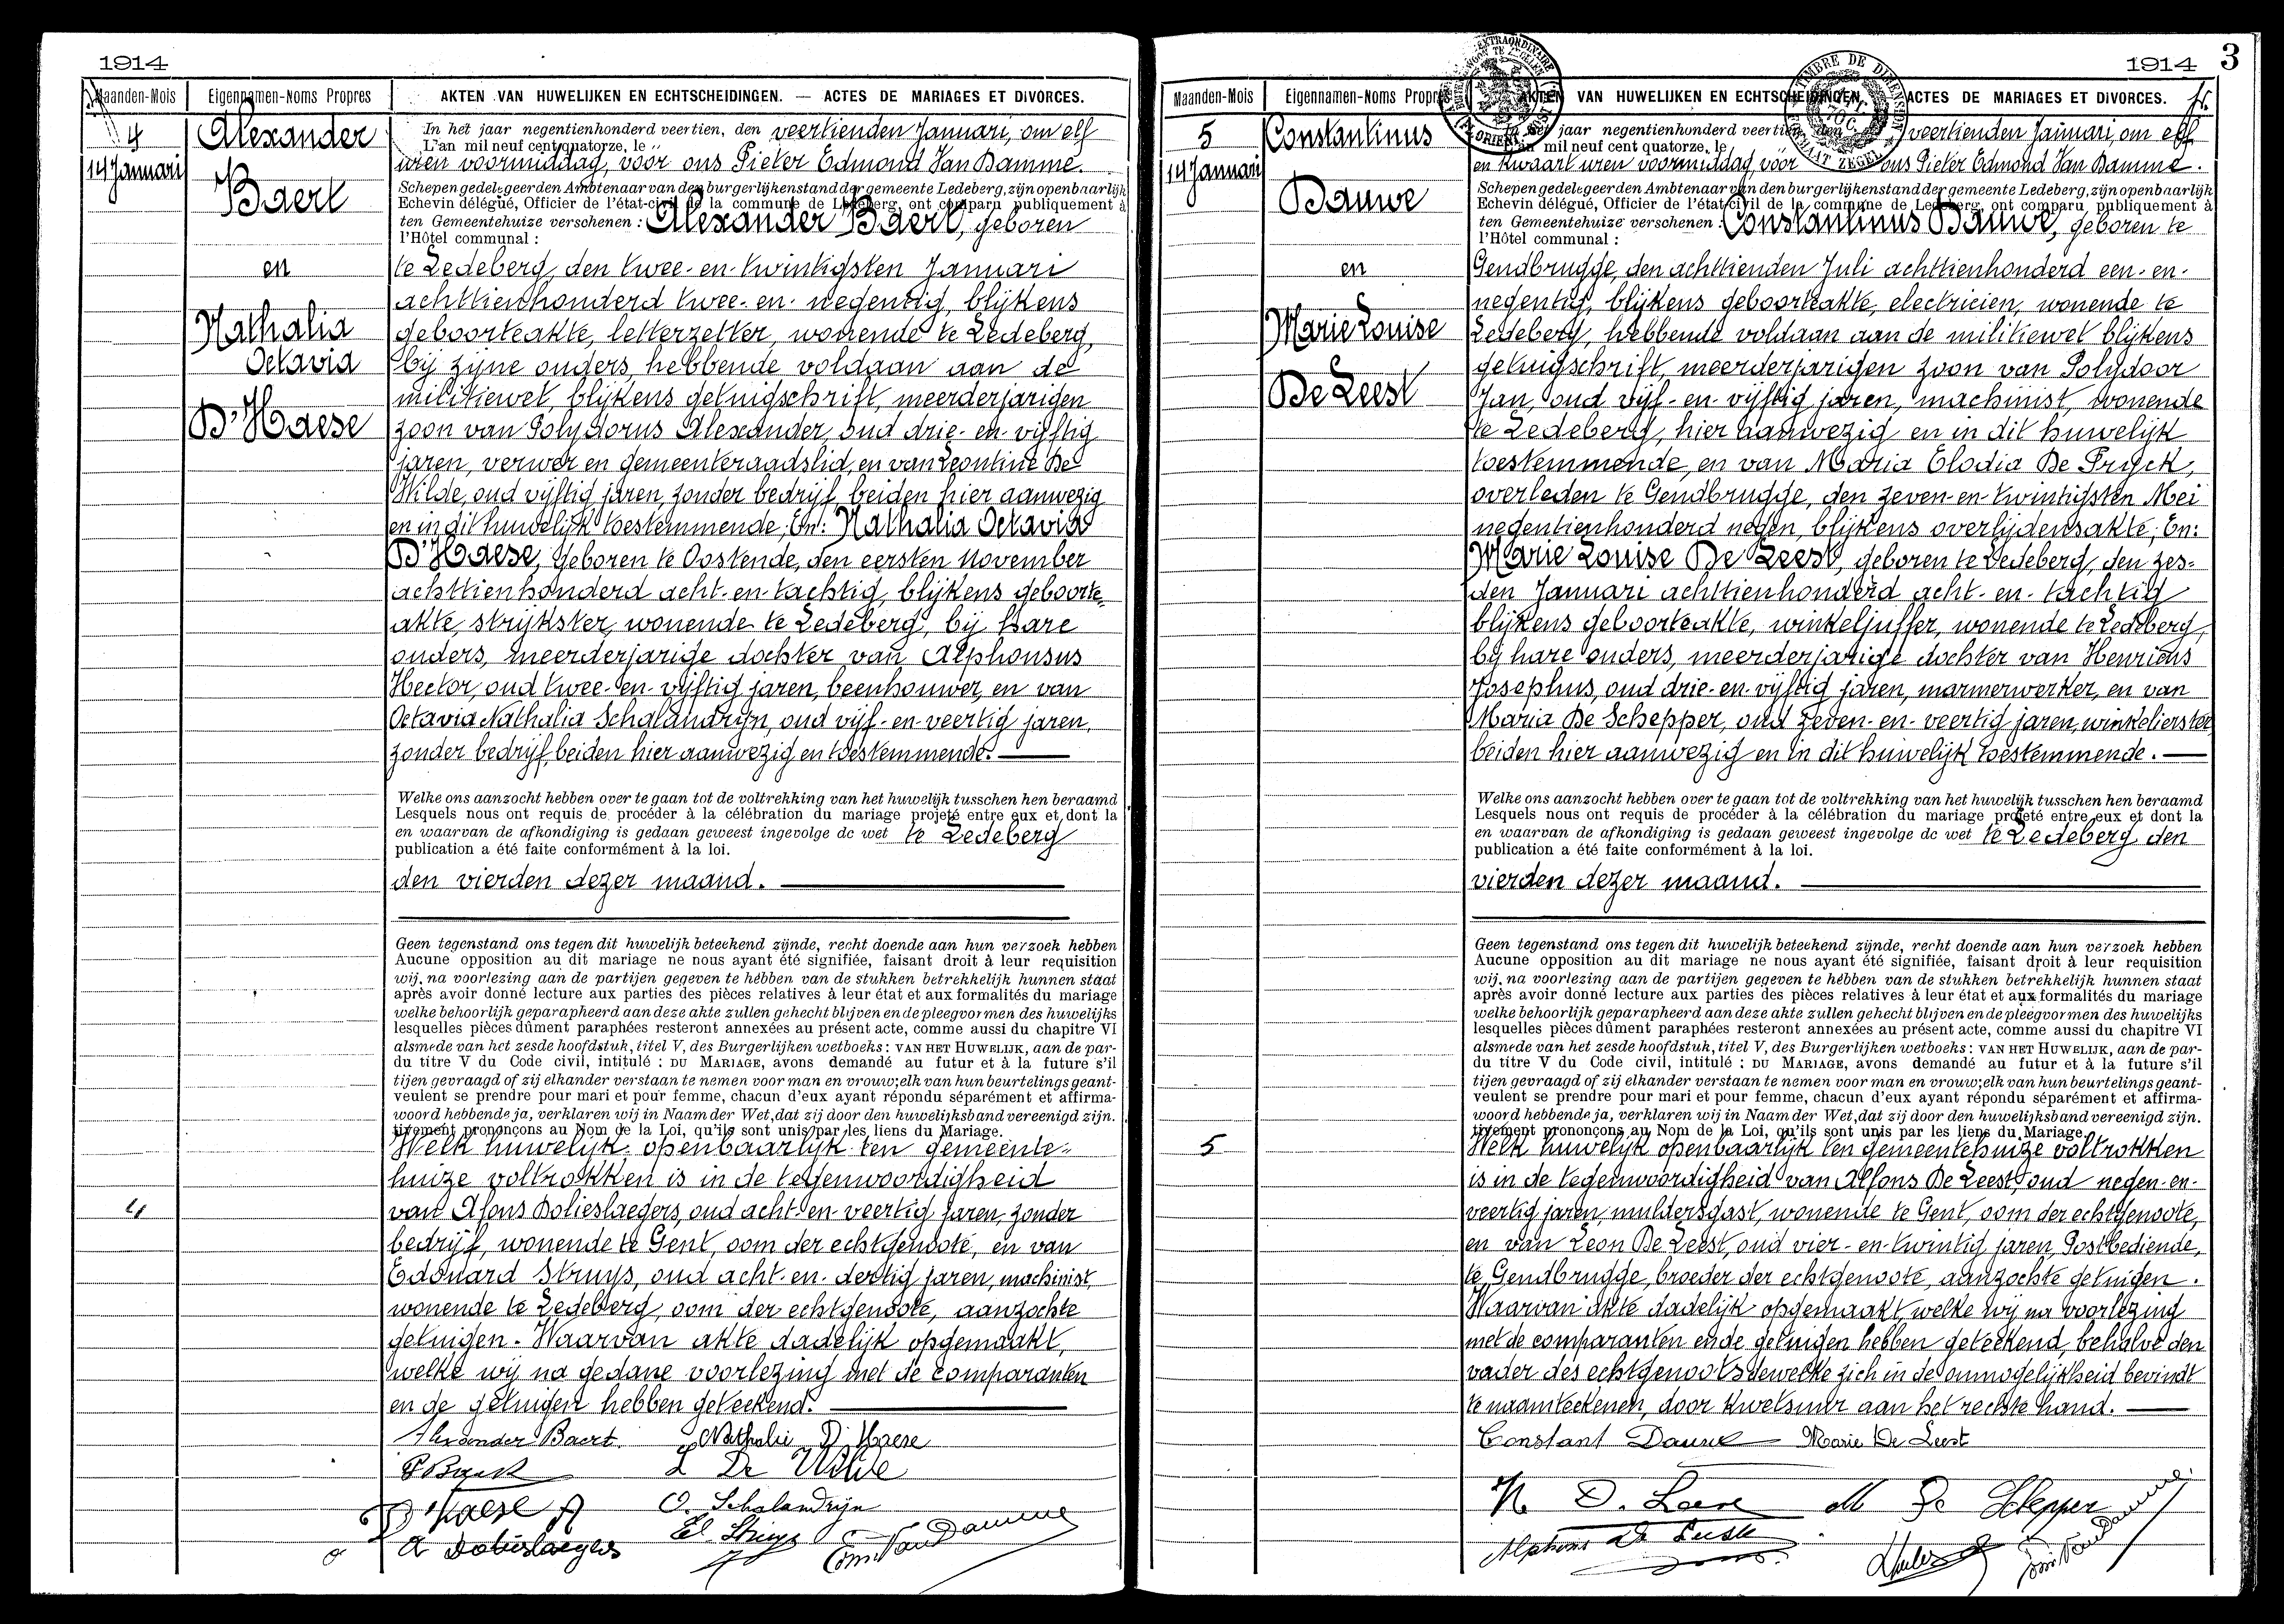 1914
Maanden-Mois Eigennamen-Noms Propres AKTEN VAN HUWELIJKEN EN ECHTSCHEIDINGEN. — ACTES DE MARIAGES ET DIVORCES.
4
14 Januari
Alexander
Baert
en
Nathalia
Octavia
D'Haese
4
In het jaar negentienhonderd veertien, den veertienden Januari, om elf
L'an mil neuf cent quatorze, le
uren voormiddag, voor ons Pieter Edmond Van Damme.
Schepen gedelegeerden Ambtenaar van den burgerlijken stand der gemeente Ledeberg, zijn openbaarlijk
Echevin délégué, Officier de l'état-civil de la commune de Ledeberg, ont comparu publiquement à
ten Gemeentehuize verschenen : Alexander Baert, geboren
l'Hôtel communal :
te Ledeberg, den twee-en-twintigsten Januari
achttienhonderd twee-en-negentig, blijkens
geboorteakte, letterzetter, wonende te Ledeberg,
bij zijne ouders, hebbende voldaan aan de
militiewet, blijkens getuigschrift, meerderjarigen
zoon van Polydorus Alexander, oud drie-en-vijftig
jaren, verwer en gemeenteraadslid, en van Leontine De
Wilde, oud vijftig jaren, zonder bedrijf, beiden hier aanwezig
en in dit huwelijk toestemmende; En: Nathalia Octavia
D'Haese, geboren te Oostende, den eersten November
achttienhonderd acht-en-tachtig, blijkens geboorte-
akte, strijkster, wonende te Ledeberg, bij hare
ouders, meerderjarige dochter van Alphonsus
Hector, oud twee-en-vijftig jaren, beenhouwer, en van
Octavia Nathalia Schalandrijn, oud vijf-en-veertig jaren,
zonder bedrijf, beiden hier aanwezig en toestemmende.
Welke ons aanzocht hebben over te gaan tot de voltrekking van het huwelijk tusschen hen beraamd
Lesquels nous ont requis de procéder à la célébration du mariage projeté entre eux et dont la
en waarvan de afkondiging is gedaan geweest ingevolge de wet te Ledeberg
publication a été faite conformément à la loi.
den vierden dezer maand.
Geen tegenstand ons tegen dit huwelijk beteekend zijnde, recht doende aan hun verzoek hebben
Aucune opposition au dit mariage ne nous ayant été signifiée, faisant droit à leur requisition
wij, na voorlezing aan de partijen gegeven te hebben van de stukken betrekkelijk hunnen staat
après avoir donné lecture aux parties des pièces relatives à leur état et aux formalités du mariage
welke behoorlijk geparapheerd aan deze akte zullen gehecht blijven en de pleegvormen des huwelijks
lesquelles pièces dûment paraphées resteront annexées au présent acte, comme aussi du chapitre VI
alsmede van het zesde hoofdstuk, titel V, des Burgerlijken wetboeks : VAN HET HUWELIJK, aan de par-
du titre V du Code civil, intitulé : DU MARIAGE, avons demandé au futur et à la future s'il
tijen gevraagd of zij elkander verstaan te nemen voor man en vrouw; elk van hun beurtelings geant-
veulent se prendre pour mari et pour femme, chacun d'eux ayant répondu séparément et affirma-
woord hebbende ja, verklaren wij in Naam der Wet, dat zij door den huwelijksband vereenigd zijn.
tivement prononçons au Nom de la Loi, qu'ils sont unis par les liens du Mariage.
Welk huwelijk openbaarlijk ten gemeente-
huize voltrokken is in de tegenwoordigheid
van Alfons Dolieslaegers, oud acht-en-veertig jaren, zonder
bedrijf, wonende te Gent, oom der echtgenoote, en van
Edouard Struys, oud acht-en-dertig jaren, machinist,
wonende te Ledeberg, oom der echtgenoote, aanzochte
getuigen. Waarvan akte dadelijk opgemaakt,
welke wij na gedane voorlezing met de comparanten
en de getuigen hebben geteekend.
Alexander Baert. Nathalie D'Haese
P Baert L De Wilde
D'Haese A O. Schalandrijn
A Dolieslaegers Ed. Struys Edm. Van Damme
1914 3
Maanden-Mois Eigennamen-Noms Propres AKTEN VAN HUWELIJKEN EN ECHTSCHEIDINGEN. ACTES DE MARIAGES ET DIVORCES.
TIMBRE DE DIMENSION
5
14 Januari
Constantinus
Dauwe
en
Marie Louise
De Leest
5
In het jaar negentienhonderd veertien, den veertienden Januari, om elf
L'an mil neuf cent quatorze, le
en kwaart uren voormiddag, voor ons Pieter Edmond Van Damme.
Schepen gedelegeerden Ambtenaar van den burgerlijken stand der gemeente Ledeberg, zijn openbaarlijk
Echevin délégué, Officier de l'état-civil de la commune de Ledeberg, ont comparu publiquement à
ten Gemeentehuize verschenen : Constantinus Dauwe, geboren te
l'Hôtel communal :
Gendbrugge, den achttienden Juli achttienhonderd een-en-
negentig, blijkens geboorteakte, electricien, wonende te
Ledeberg, hebbende voldaan aan de militiewet blijkens
getuigschrift, meerderjarigen zoon van Polydoor
Jan, oud vijf-en-vijftig jaren, machinist, wonende
te Ledeberg, hier aanwezig en in dit huwelijk
toestemmende, en van Maria Elodia De Pryck,
overleden te Gendbrugge, den zeven-en-twintigsten Mei
negentienhonderd negen, blijkens overlijdensakte; En:
Marie Louise De Leest, geboren te Ledeberg, den zes-
den Januari achttienhonderd acht-en-tachtig
blijkens geboorteakte, winkeljuffer, wonende te Ledeberg,
bij hare ouders, meerderjarige dochter van Henricus
Josephus, oud drie-en-vijftig jaren, marmerwerker, en van
Maria De Schepper, oud zeven-en-veertig jaren, winkelierster
beiden hier aanwezig en in dit huwelijk toestemmende.
Welke ons aanzocht hebben over te gaan tot de voltrekking van het huwelijk tusschen hen beraamd
Lesquels nous ont requis de procéder à la célébration du mariage projeté entre eux et dont la
en waarvan de afkondiging is gedaan geweest ingevolge de wet te Ledeberg den
publication a été faite conformément à la loi.
vierden dezer maand.
Geen tegenstand ons tegen dit huwelijk beteekend zijnde, recht doende aan hun verzoek hebben
Aucune opposition au dit mariage ne nous ayant été signifiée, faisant droit à leur requisition
wij, na voorlezing aan de partijen gegeven te hebben van de stukken betrekkelijk hunnen staat
après avoir donné lecture aux parties des pièces relatives à leur état et aux formalités du mariage
welke behoorlijk geparapheerd aan deze akte zullen gehecht blijven en de pleegvormen des huwelijks
lesquelles pièces dûment paraphées resteront annexées au présent acte, comme aussi du chapitre VI
alsmede van het zesde hoofdstuk, titel V, des Burgerlijken wetboeks : VAN HET HUWELIJK, aan de par-
du titre V du Code civil, intitulé : DU MARIAGE, avons demandé au futur et à la future s'il
tijen gevraagd of zij elkander verstaan te nemen voor man en vrouw; elk van hun beurtelings geant-
veulent se prendre pour mari et pour femme, chacun d'eux ayant répondu séparément et affirma-
woord hebbende ja, verklaren wij in Naam der Wet, dat zij door den huwelijksband vereenigd zijn.
tivement prononçons au Nom de la Loi, qu'ils sont unis par les liens du Mariage.
Welk huwelijk openbaarlijk ten gemeentehuize voltrokken
is in de tegenwoordigheid van Alfons De Leest, oud negen-en-
veertig jaren, muldersgast, wonende te Gent, oom der echtgenoote,
en van Leon De Leest, oud vier-en-twintig jaren, Postbediende,
te Gendbrugge, broeder der echtgenoote, aanzochte getuigen.
Waarvan akte dadelijk opgemaakt, welke wij na voorlezing
met de comparanten en de getuigen hebben geteekend, behalve den
vader des echtgenoots dewelke zich in de onmogelijkheid bevindt
te naamteekenen, door kwetsuur aan het rechte hand.
Constant Dauwe Marie De Leest
M De Schepper
Alphons De Leest Edm. Van Damme